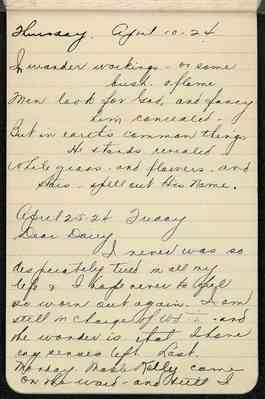 Thursday. April 10-24
In wonder workings - or some
bush aflame
Men look for God, and fancy
him concealed -
But in earth's common things
He stands revealed
While grass - and flowers - and
stars - spell out His Name.
April 25-24 Friday
Dear Diary
I never was so
desperately tired in all my
life & I hope never to feel
so worn out again. I am
still in charge of and
the wonder is that I have
any senses left. Last
Monday Mable Kelly came
on the ward - and still I